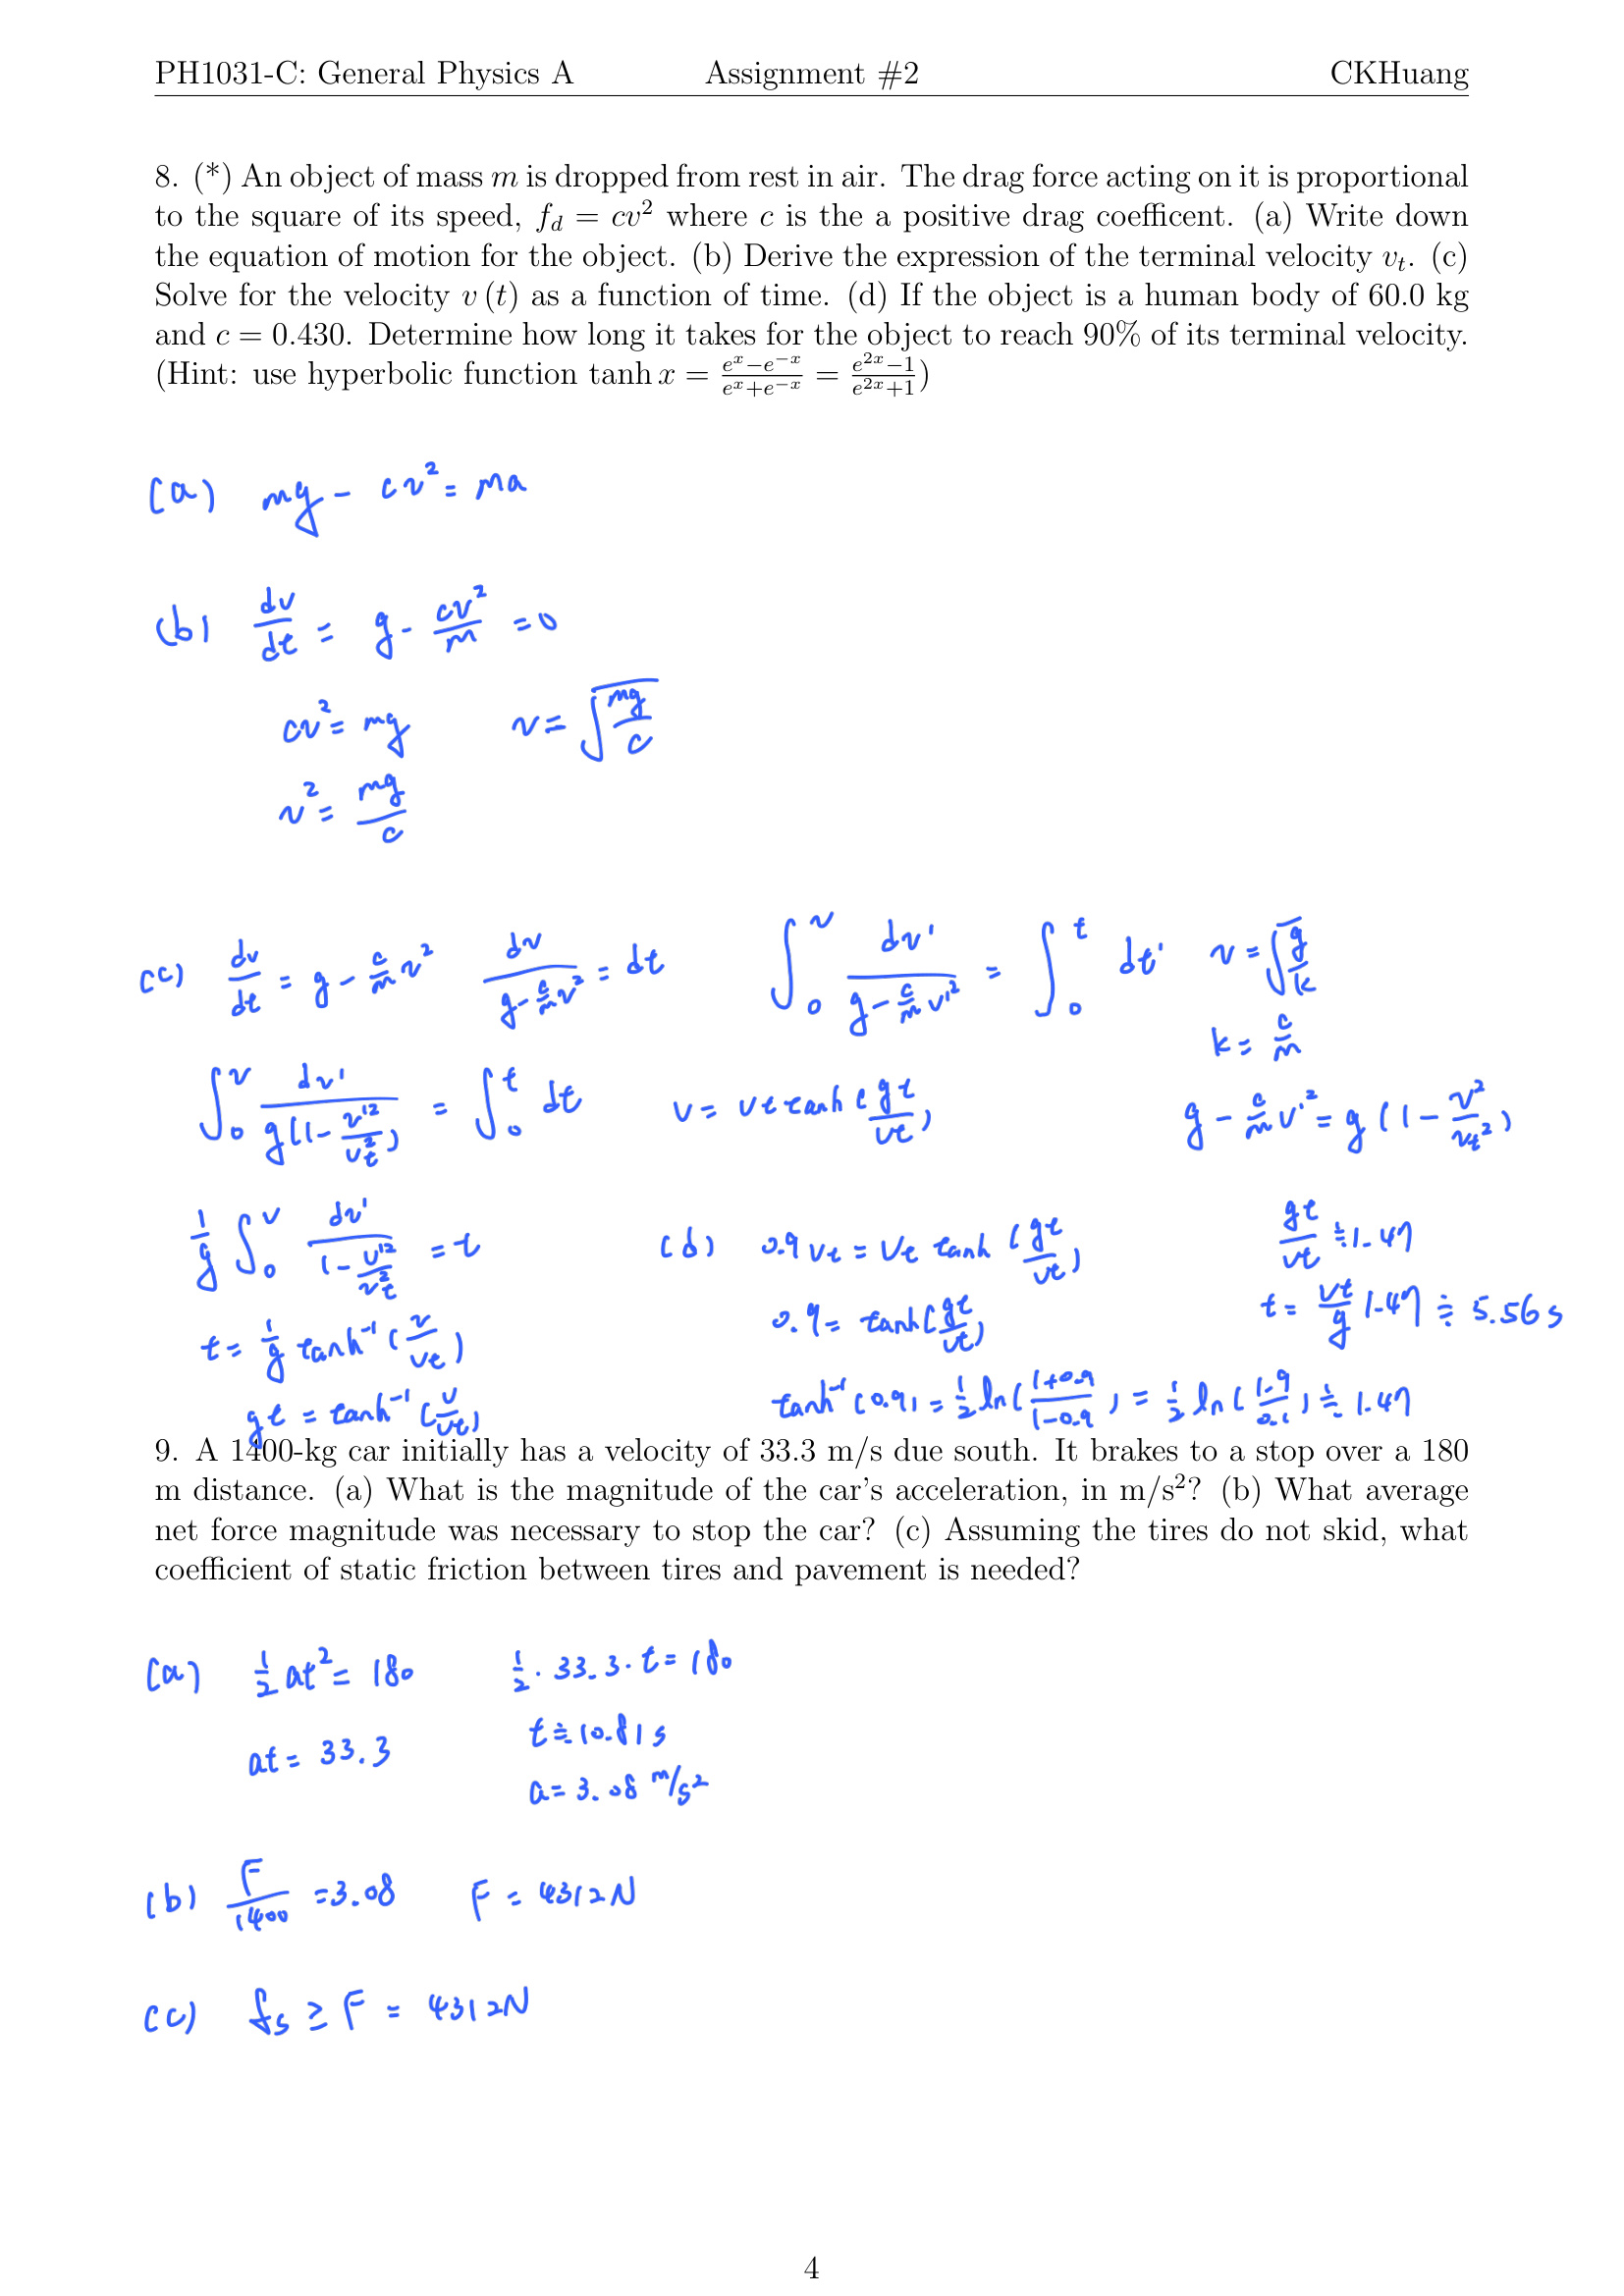 PH1031-C: General Physics A Assignment #2 CKHuang
8. (*) An object of mass m is dropped from rest in air. The drag force acting on it is proportional
to the square of its speed, f_d = cv² where c is the a positive drag coefficent. (a) Write down
the equation of motion for the object. (b) Derive the expression of the terminal velocity v_t. (c)
Solve for the velocity v (t) as a function of time. (d) If the object is a human body of 60.0 kg
and c = 0.430. Determine how long it takes for the object to reach 90% of its terminal velocity.
(Hint: use hyperbolic function tanh x = (e^x − e^−x)/(e^x + e^−x) = (e^2x − 1)/(e^2x + 1))
(a) mg − cv² = ma
(b) dv/dt = g − cv²/m = 0
cv² = mg v = √(mg/c)
v² = mg/c
(c) dv/dt = g − (c/m)v² dv/(g − (c/m)v²) = dt ∫₀^v dv'/(g − (c/m)v'²) = ∫₀^t dt' v = √(g/k)
k = c/m
∫₀^v dv'/(g(1 − v'²/v_t²)) = ∫₀^t dt v = v_t tanh(gt/v_t) g − (c/m)v'² = g(1 − v²/v_t²)
(1/g) ∫₀^v dv'/(1 − v'²/v_t²) = t
t = (1/g) tanh⁻¹(v/v_t)
gt = tanh⁻¹(v/v_t)
(d) 0.9 v_t = v_t tanh(gt/v_t) gt/v_t ≒ 1.47
0.9 = tanh(gt/v_t) t = (v_t/g) 1.47 ≒ 5.56 s
tanh⁻¹(0.9) = ½ ln((1+0.9)/(1−0.9)) = ½ ln(1.9/0.1) ≒ 1.47
9. A 1400-kg car initially has a velocity of 33.3 m/s due south. It brakes to a stop over a 180
m distance. (a) What is the magnitude of the car's acceleration, in m/s²? (b) What average
net force magnitude was necessary to stop the car? (c) Assuming the tires do not skid, what
coefficient of static friction between tires and pavement is needed?
(a) ½ at² = 180 ½ · 33.3 · t = 180
at = 33.3 t ≒ 10.81 s
a = 3.08 m/s²
(b) F/1400 = 3.08 F = 4312 N
(c) fs ≥ F = 4312 N
4